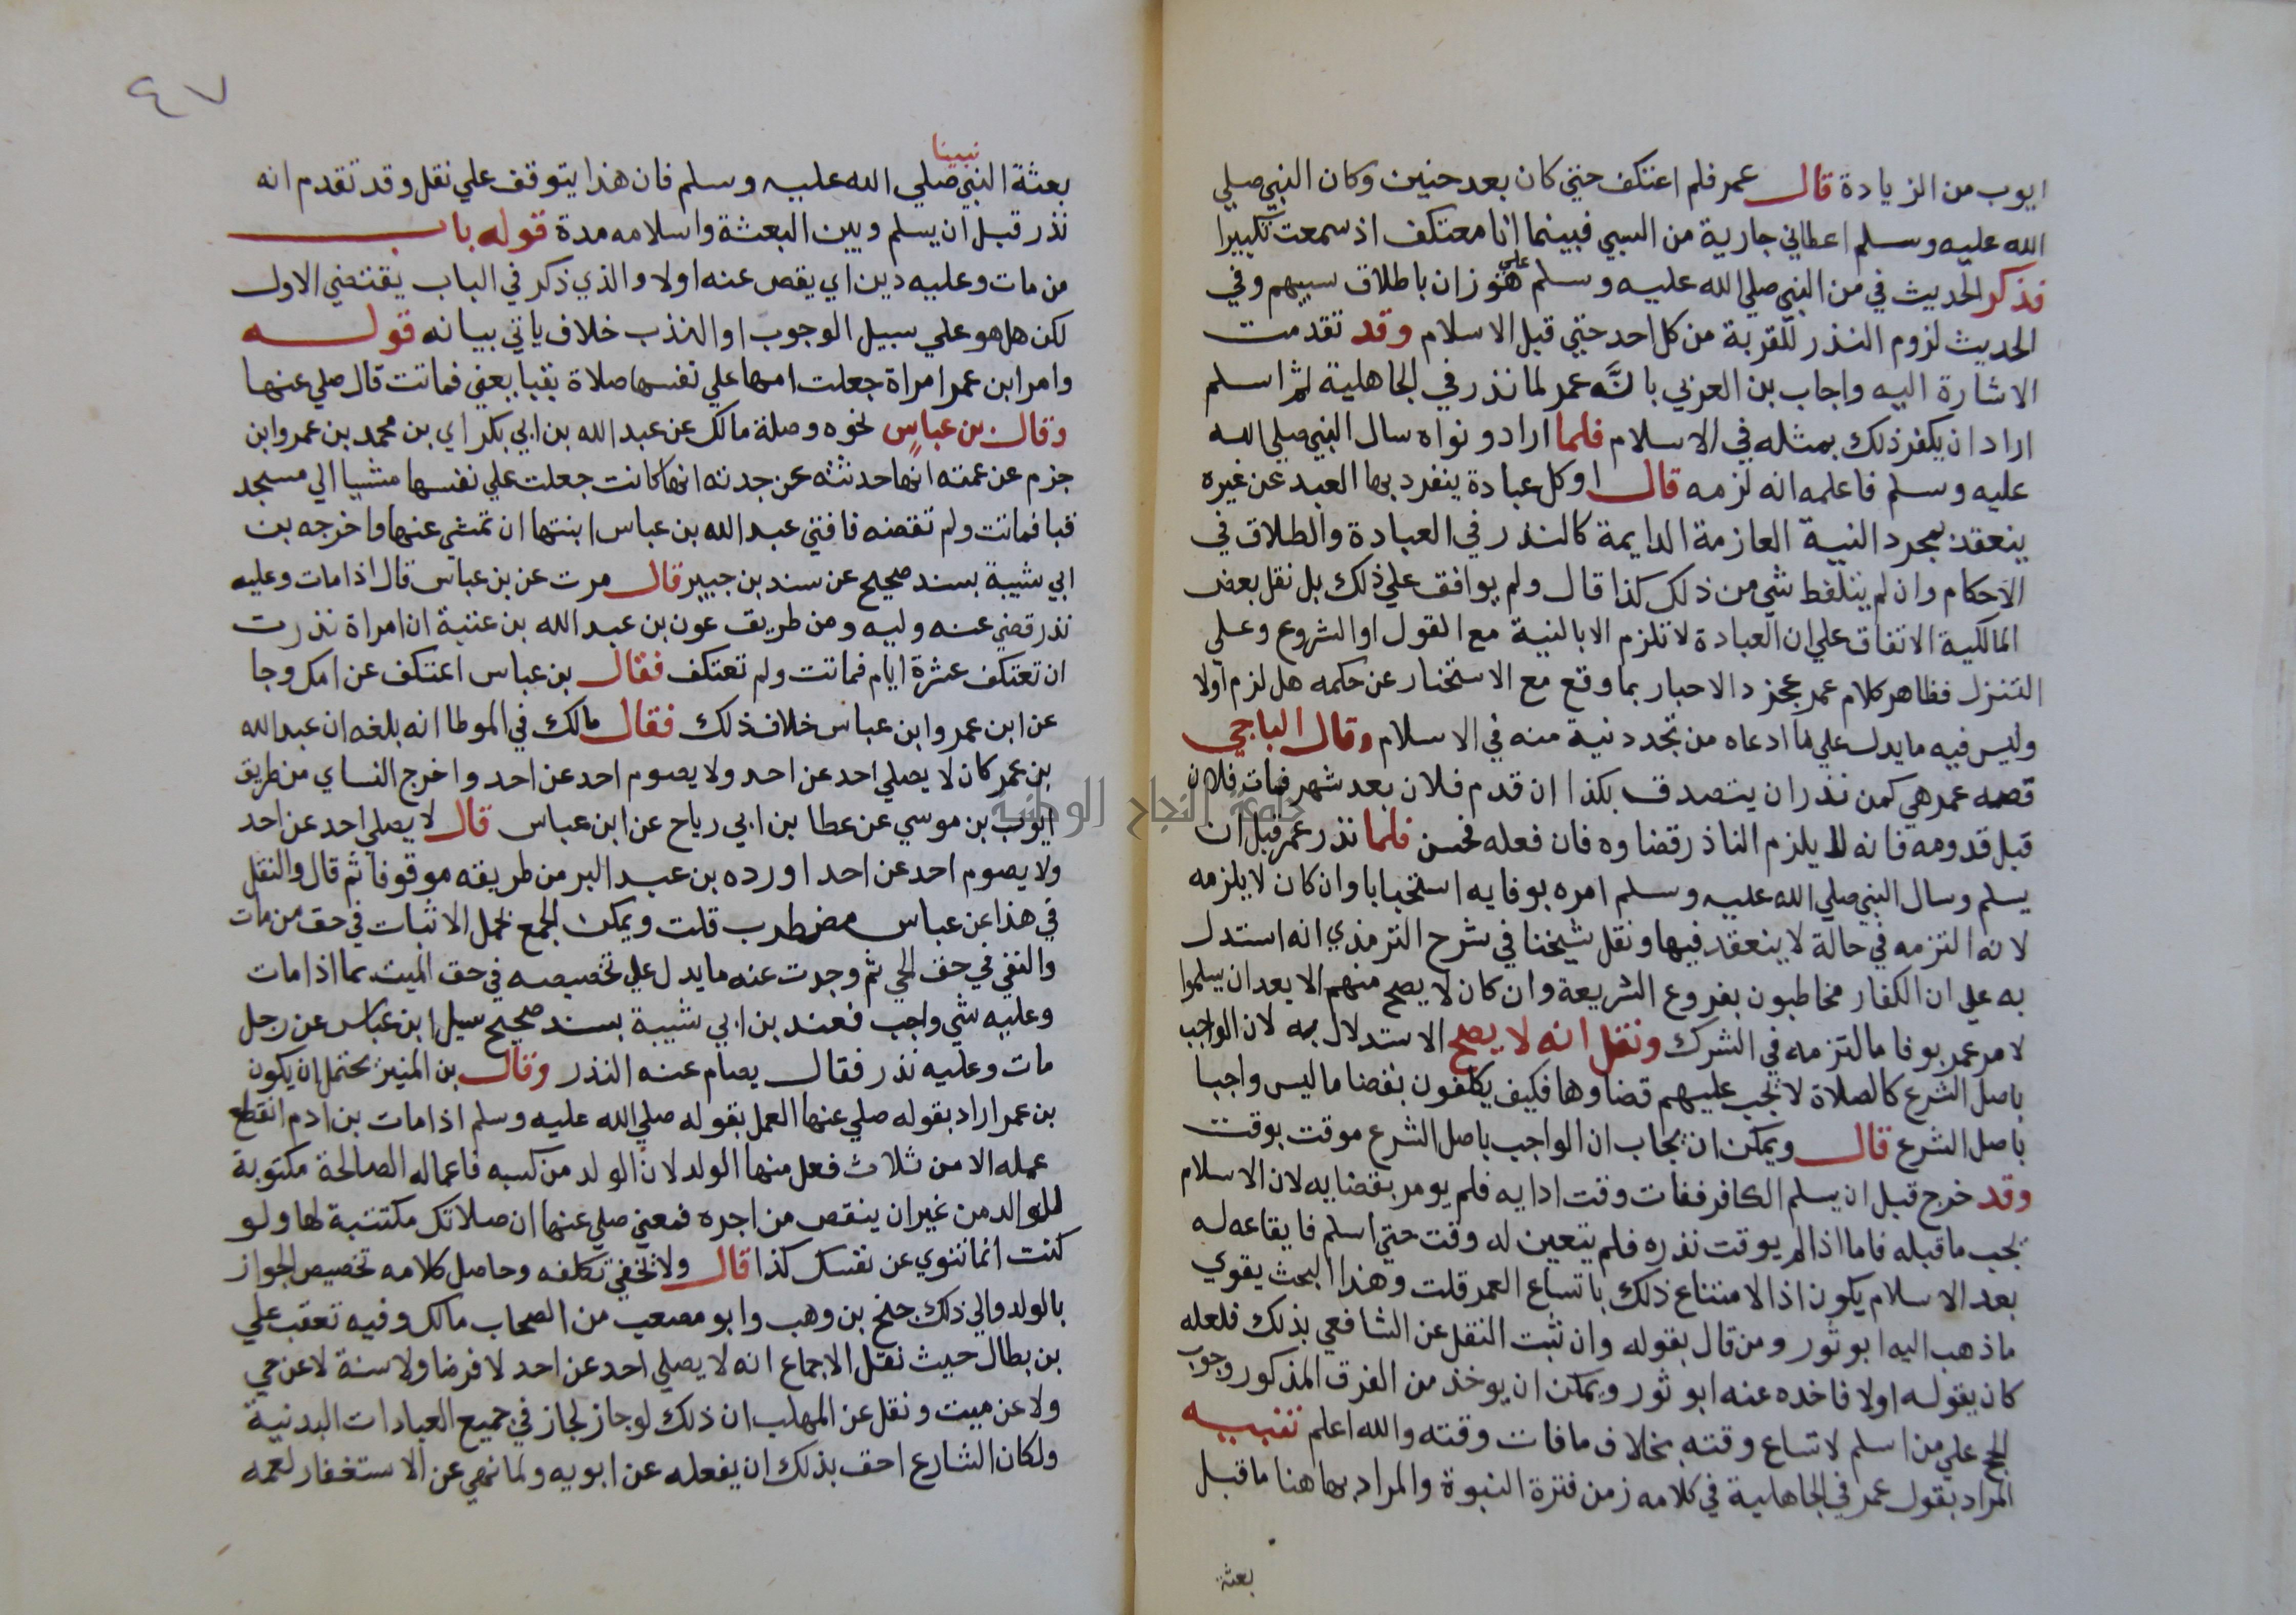 ايوب من الزيادة قال عمر فلم اعتكف حتى كان بعد حنين وكان النبي صلي
الله عليه وسلم اعطاني جارية من السبي فبينما انا معتكف اذ سمعت تكبيرا
فذكر الحديث في من النبي صلي الله عليه وسلم علي هوزان باطلاق سبيهم وفي
الحديث لزوم النذر للقربة من كل احد حتي قبل الاسلام وقد تقدمت
الاشارة اليه واجاب بن العربي بانه عمر لما نذر في الجاهلية ثم اسلم
اراد ان يكفر ذلك بمثله في الاسلام فلما اراد ونواه سال النبي صلي الله
عليه وسلم فاعلمه انه لزمه قال وكل عبادة ينفرد بها العبد عن غيره
ينعقد بمجرد النية العازمة الدايمة كالنذر في العبادة والطلاق في
الاحكام وان لم يتلفظ شي من ذلك كذا قال ولم يوافق علي ذلك بل نقل بعض
المالكية الاتفاق علي ان العبادة لا تلزم الا بالنية مع القول او الشروع وعلي
التنزل فظاهر كلام عمر مجرد الاحبار بما وقع مع الاستخبار عن حكمه هل لزم اولا
وليس فيه ما يدل علي ما ادعاه من تجدد نية منه في الاسلام وقال الباجي
قصه عمر هي كمن نذر ان يتصدق بكذا ان قدم فلان بعد شهر فمات فلان
قبل قدومه فانه لا يلزم الناذر قضاوه فان فعله فحسن فلما نذر عمر قبل ان
يسلم وسال النبي صلي الله عليه وسلم امره بوفايه استحبابا وان كان لا يلزمه
لانه التزمه في حالة لا ينعقد فيها ونقل شيخنا في شرح الترمذي انه استدل
به علي ان الكفار مخاطبون بفروع الشريعة وان كان لا يصح منهم الا بعد ان يسلموا
لامر عمر بوفا ما التزمه في الشرك ونقل انه لا يصح الاستدلال به لان الواجب
باصل الشرع كالصلاة لا تجب عليهم قضاوها فكيف يكلفون بقضا ما ليس واجبا
باصل الشرع قال ويمكن ان يجاب ان الواجب باصل الشرع موقت بوقت
وقد خرج قبل ان يسلم الكافر ففات وقت ادايه فلم يومر بقضايه لان الاسلام
يجب ما قبله فاما اذا لم يوقت نذره فلم يتعين له وقت حتي اسلم فايقاعه له
بعد الاسلام يكون اذا لا متناع ذلك باتساع العمر قلت وهذا البحث يقوي
ما ذهب اليه ابو ثور ومن قال بقوله وان ثبت النقل عن الشافعي بذلك فلعله
كان يقوله اولا فاخده عنه ابو ثور ويمكن ان يوخذ من الفرق المذكور وجوب
الحج علي من اسلم لاتساع وقته بخلاف ما فات وقته والله اعلم تنبيه
المراد بقول عمر في الجاهلية في كلامه زمن فترة النبوة والمراد بها هنا ما قبل
بعثة
٤٧
نبينا
بعثة النبي صلي الله عليه وسلم فان هذا يتوقف علي نقل وقد تقدم انه
نذر قبل ان يسلم وبين البعثة واسلامه مدة قوله باب
من مات وعليه دين اي يقض عنه اولا والذي ذكر في الباب يقتضي الاول
لكن هل هو علي سبيل الوجوب او الندب خلاف ياتي بيانه قوله
وامر ابن عمر امراة جعلت امها علي نفسها صلاة بقبا يعني فماتت قال صلي عنها
وقال بن عباس نحوه وصله مالك عن عبد الله بن ابي بكر اي بن محمد بن عمر وابن
حزم عن عمته انها حدثته عن جدته انها كانت جعلت علي نفسها مشيا الي مسجد
قبا فماتت ولم تقضه فافتي عبد الله بن عباس ابنتها ان تمشي عنها واخرجه بن
ابي شيبة بسند صحيح عن سند بن جبير قال مرت عن بن عباس قال اذا مات وعليه
نذر قضي عنه وليه ومن طريق عون بن عبد الله بن عتبة ان امراة نذرت
ان تعتكف عشرة ايام فماتت ولم تعتكف فقال بن عباس اعتكف عن امك وجا
عن ابن عمر وابن عباس خلاف ذلك فقال مالك في الموطا انه بلغه ان عبد الله
بن عمر كان لا يصلي احد عن احد ولا يصوم احد عن احد واخرج النساي من طريق
ايوب بن موسي عن عطا بن ابي رباح عن ابن عباس قال لا يصلي احد عن احد
ولا يصوم احد عن احد اورده بن عبد البر من طريقه موقوفا ثم قال والنقل
في هذا عن عباس مضطرب قلت ويمكن الجمع بحمل الاثبات في حق من مات
والنفي في حق الحي ثم وجدت عنه ما يدل علي تخصيصه في حق الميت بما اذا مات
وعليه شي واجب فعند بن ابي شيبة بسند صحيح سيل ابن عباس عن رجل
مات وعليه نذر فقال يصام عنه النذر وقال بن المنير يحتمل ان يكون
بن عمر اراد بقوله صلي عنها العمل بقوله صلي الله عليه وسلم اذا مات بن ادم انقطع
عمله الا من ثلاث فعل منها الولد لان الولد من كسبه فاعماله الصالحة مكتوبة
للوالد من غير ان ينقص من اجره فمعني صلي عنها ان صلاتك مكتتبة لها ولو
كنت انما تنوي عن نفسك كذا قال ولا يخفي تكلفه وحاصل كلامه تخصيص الجواز
بالولد والي ذلك جنح بن وهب وابو مصعب من اصحاب مالك وفيه تعقب علي
بن بطال حيث نقل الاجماع انه لا يصلي احد عن احد لا فرضا ولا سنة لا عن حي
ولا عن ميت ونقل عن المهلب ان ذلك لو جاز لجاز في جميع العبادات البدنية
ولكان الشارع احق بذلك ان يفعله عن ابويه ولما نهي عن الاستغفار لعمه
جامعة النجاح الوطنية